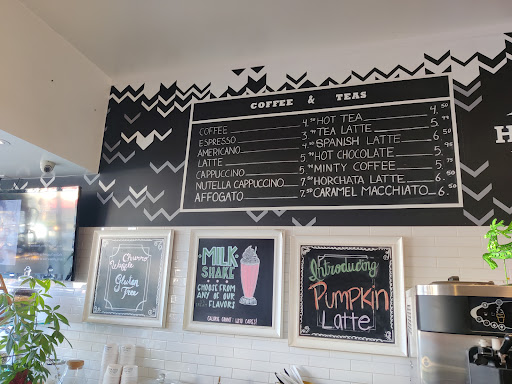 COFFEE & TEAS
COFFEE
ESPRESSO
AMERICANO
LATTE
CAPPUCCINO
NUTELLA CAPPUCCINO
AFFOGATO
HOT TEA 4.50
TEA LATTE 5.
SPANISH LATTE 6.
HOT CHOCOLATE 5.
MINTY COFFEE 5.
HORCHATA LATTE 6.
CARAMEL MACCHIATO 6.50
Churro
Waffle
Gluten
Free
MILK
SHAKE
CHOOSE FROM
ANY OF OUR
FLAVORS
Introducing
Pumpkin
Latte